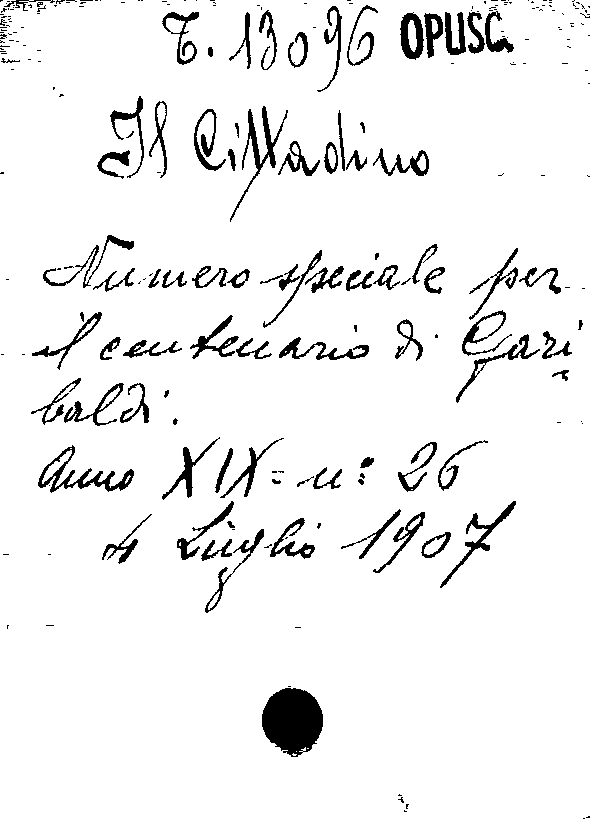 T. 13096 OPUSC.
Il Cittadino
Numero speciale per
il centenario di Gari
baldi.
Anno XIX = nº 26
4 Luglio 1907